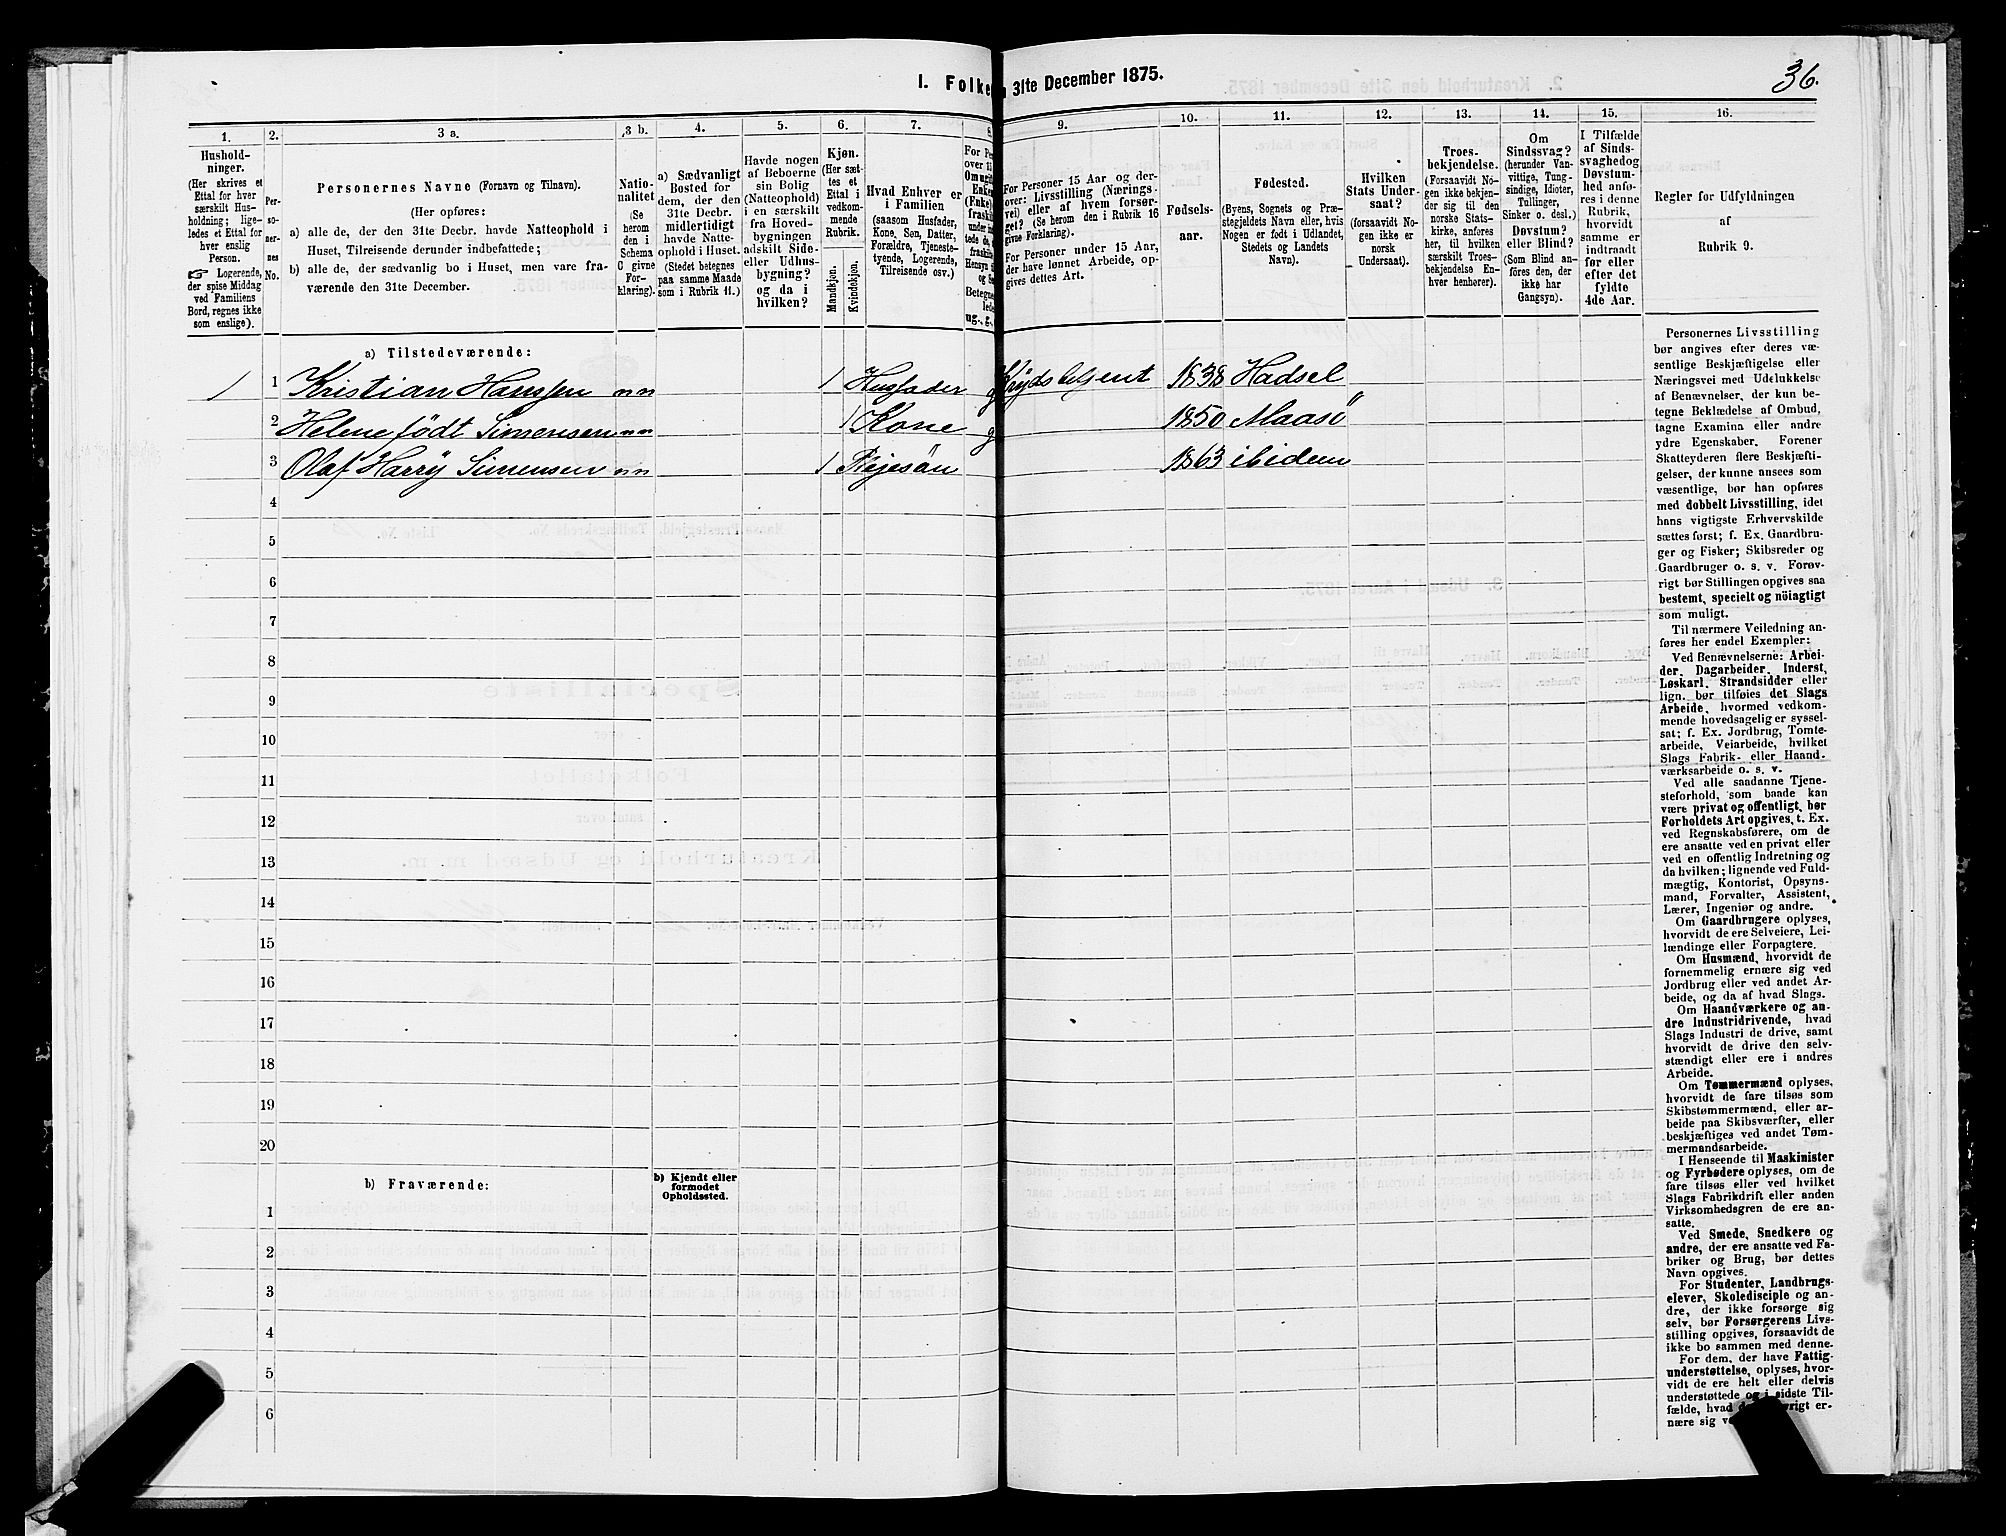 I. Folke
n 31te December 1875.
36.
1.
Husholdninger.
(Her skrives et
Ettal for hver
særskilt Husholdning; ligeledes et Ettal for
hver enslig
Person.
☞ Logerende,
der spise Middag
ved Familiens
Bord, regnes ikke
som enslige).
2.
Personernes
No.
3 a.
Personernes Navne (Fornavn og Tilnavn).
(Her opføres:
a) alle de, der den 31te Decbr. havde Natteophold i
Huset, Tilreisende derunder indbefattede;
b) alle de, der sædvanlig bo i Huset, men vare fraværende den 31te December.
3 b.
Nationalitet
(Se
herom
den i
Schema
C givne
Forklaring).
4.
a) Sædvanligt
Bosted for
dem, der den
31te Decbr.
midlertidigt
havde Natteophold i Huset.
(Stedet betegnes
paa samme Maade
som i Rubrik 11.)
5.
Havde nogen
af Beboerne
sin Bolig
(Natteophold)
i en særskilt
fra Hovedbygningen
adskilt Sideeller Udhusbygning?
og da i
hvilken?
6.
Kjøn.
(Her sættes et
Ettal i
vedkommende
Rubrik.
Mandkjøn.
Kvindekjøn.
7.
Hvad Enhver er
i Familien
(saasom Husfader,
Kone, Søn, Datter,
Forældre, Tjenestetyende, Logerende,
Tilreisende osv.)
8.
For Pe
over 1
Om ug
Enke
(Enke)
fraski
under
tede de,
fraskil
Hensyn
og S
Betegne
lede
ug., g.,
9.
For Personer 15 Aar og derover: Livsstilling (Næringsvei) eller af hvem forsørget? (Se herom den i Rubrik 16
givne Forklaring).
For Personer under 15 Aar,
der have lønnet Arbeide, opgives dettes Art.
10.
Fødselsaar.
11.
Fødested.
(Byens, Sognets og Præstegjeldets Navn eller, hvis
Nogen er født i Udlandet,
Stedets og Landets
Navn).
12.
Hvilken
Stats Undersaat?
(forsaavidt Nogen ikke er
norsk
Undersaat).
13.
Troesbekjendelse.
(Forsaavidt Nogen ikke bekjender sig til den
norske Statskirke, anføres
her, til hvilken
særskilt Troesbekjendelse Enhver henhører).
14.
Om
Sindssvag?
(herunder Vanvittige, Tungsindige, Idioter,
Tullinger,
Sinker o. desl.)
Døvstum?
eller Blind?
(Som Blind anføres den, der
ikke har
Gangsyn).
15.
I Tilfælde
af Sindssvaghed og
Døvstumhed anføres i denne
Rubrik,
hvorvidt
samme er
indtraadt
før eller
efter det
fyldte
4de Aar.
16.
Regler for Udfyldningen
af
Rubrik 9.
a) Tilstedeværende:
1 1 Kristian Hanssen nn 1 Husfader g Krydsbetjent 1838 Hadsel
2 Helene født Simensen nn 1 Kone g 1850 Maasø
3 Olaf Harry Simensen nn 1 Plejesøn 1863 ibidem
4
5
6
7
8
9
10
11
12
13
14
15
16
17
18
19
20
b) Fraværende:
b) Kjendt eller
formodet
Opholdssted.
1
2
3
4
5
6
Personernes Livsstilling
bør angives efter deres væsentlige Beskjæftigelse eller
Næringsvei med Udelukkelse
af Benævnelser, der kun betegne Beklædelse af Ombud,
tagne Examina eller andre
ydre Egenskaber. Forener
Skatteyderen flere Beskjæftigelser, der kunne ansees som
væsentlige, bør han opføres
med dobbelt Livsstilling, idet
hans vigtigste Erhvervskilde
sættes først; f. Ex. Gaardbruger og Fisker; Skibsreder og
Gaardbruger o. s. v. Forøvrigt bør Stillingen opgives saa
bestemt, specielt og nöiagtigt
som muligt.
Til nærmere Veiledning anføres her endel Exempler:
Ved Benævnelserne: Arbeider, Dagarbeider, Inderst,
Løskarl, Strandsidder eller
lign. bør tilføies det Slags
Arbeide, hvormed vedkommende hovedsagelig er sysselsat; f. Ex. Jordbrug, Tomtearbeide, Veiarbeide, hvilket
Slags Fabrik- eller Haandværksarbeide o. s. v.
Ved alle saadanne Tjenesteforhold, som baade kan
være privat og offentligt, bør
Forholdets Art opgives, t. Ex.
ved Regnskabsførere, om de
ere ansatte ved en privat eller
ved en offentlig Indretning og
da hvilken; lignende ved Fuldmægtig, Kontorist, Opsynsmand, Forvalter, Assistent,
Lærer, Ingeniør og andre.
Om Gaardbrugere oplyses,
hvorvidt de ere Selveiere, Leilændinge eller Forpagtere.
Om Husmænd, hvorvidt de
fornemmelig ernære sig ved
Jordbrug eller ved andet Arbeide, og da af hvad Slags.
Om Haandværkere og andre Industridrivende, hvad
Slags Industri de drive, samt
hvorvidt de drive den selvstændigt eller ere i andres
Arbeide.
Om Tømmermænd oplyses,
hvorvidt de fare tilsøs som
Skibstømmermænd, eller arbeide paa Skibsværfter, eller
beskjæftiges ved andet Tømmermandsarbeide.
I Henseende til Maskinister
og Fyrbødere oplyses, om de
fare tilsøs eller ved hvilket
Slags Fabrikdrift eller anden
Virksomhedsgren de ere ansatte.
Ved Smede, Snedkere og
andre, der ere ansatte ved Fabriker og Brug, bør dettes
Navn opgives.
For Studenter, Landbrugselever, Skoledisciple og andre, der ikke forsørge sig
selv, bør Forsørgerens Livsstilling opgives, forsaavidt de
ikke bo sammen med denne.
For dem, der have Fattigunderstøttelse, oplyses, hvorvidt de ere helt eller delvis
understøttede og i sidste Tilfælde, hvad de øvrigt ernære sig v